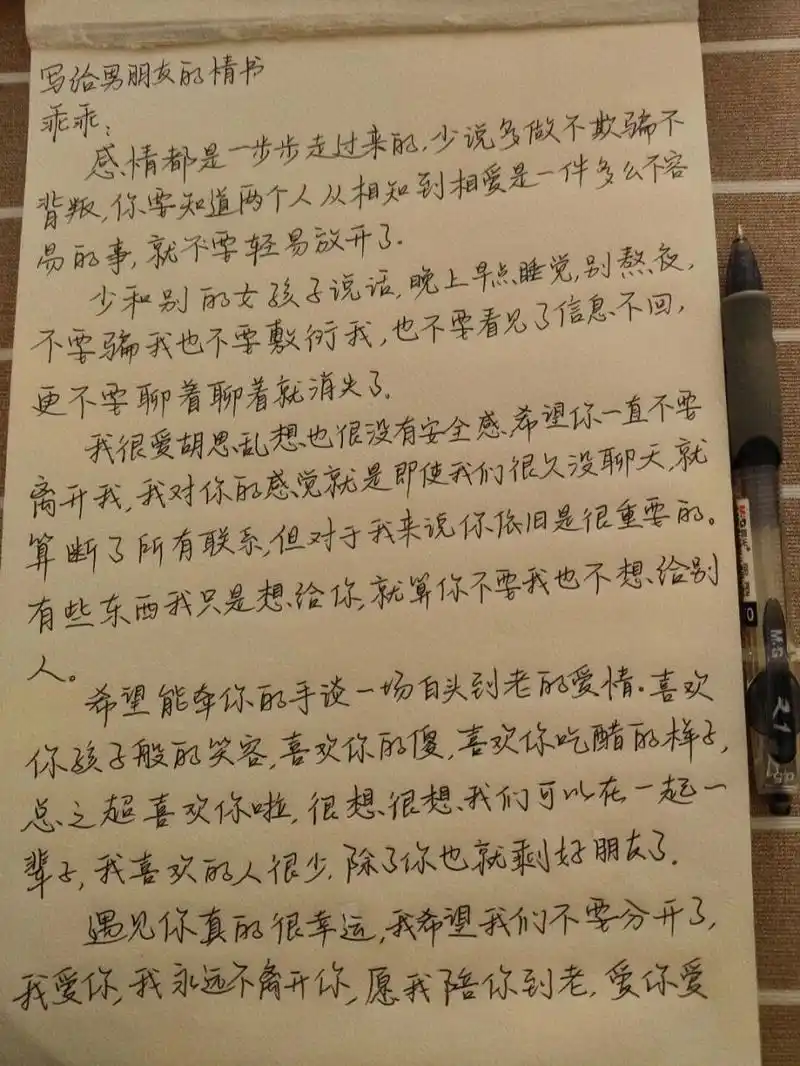 写给男朋友的情书
乖乖:
感情都是一步步走过来的,少说多做不欺骗不
背叛,你要知道两个人从相知到相爱是一件多么不容
易的事,就不要轻易放开了.
少和别的女孩子说话,晚上早点睡觉,别熬夜,
不要骗我也不要敷衍我,也不要看见了信息不回,
更不要聊着聊着就消失了.
我很爱胡思乱想也很没有安全感,希望你一直不要
离开我,我对你的感觉就是即使我们很久没聊天,就
算断了所有联系,但对于我来说你依旧是很重要的。
有些东西我只是想给你,就算你不要我也不想给别
人。
希望能牵你的手谈一场白头到老的爱情.喜欢
你孩子般的笑容,喜欢你的傻,喜欢你吃醋的样子,
总之超喜欢你啦,很想很想我们可以在一起一
辈子,我喜欢的人很少,除了你也就剩好朋友了.
遇见你真的很幸运,我希望我们不要分开了,
我爱你,我永远不离开你,愿我陪你到老,爱你爱
M&G